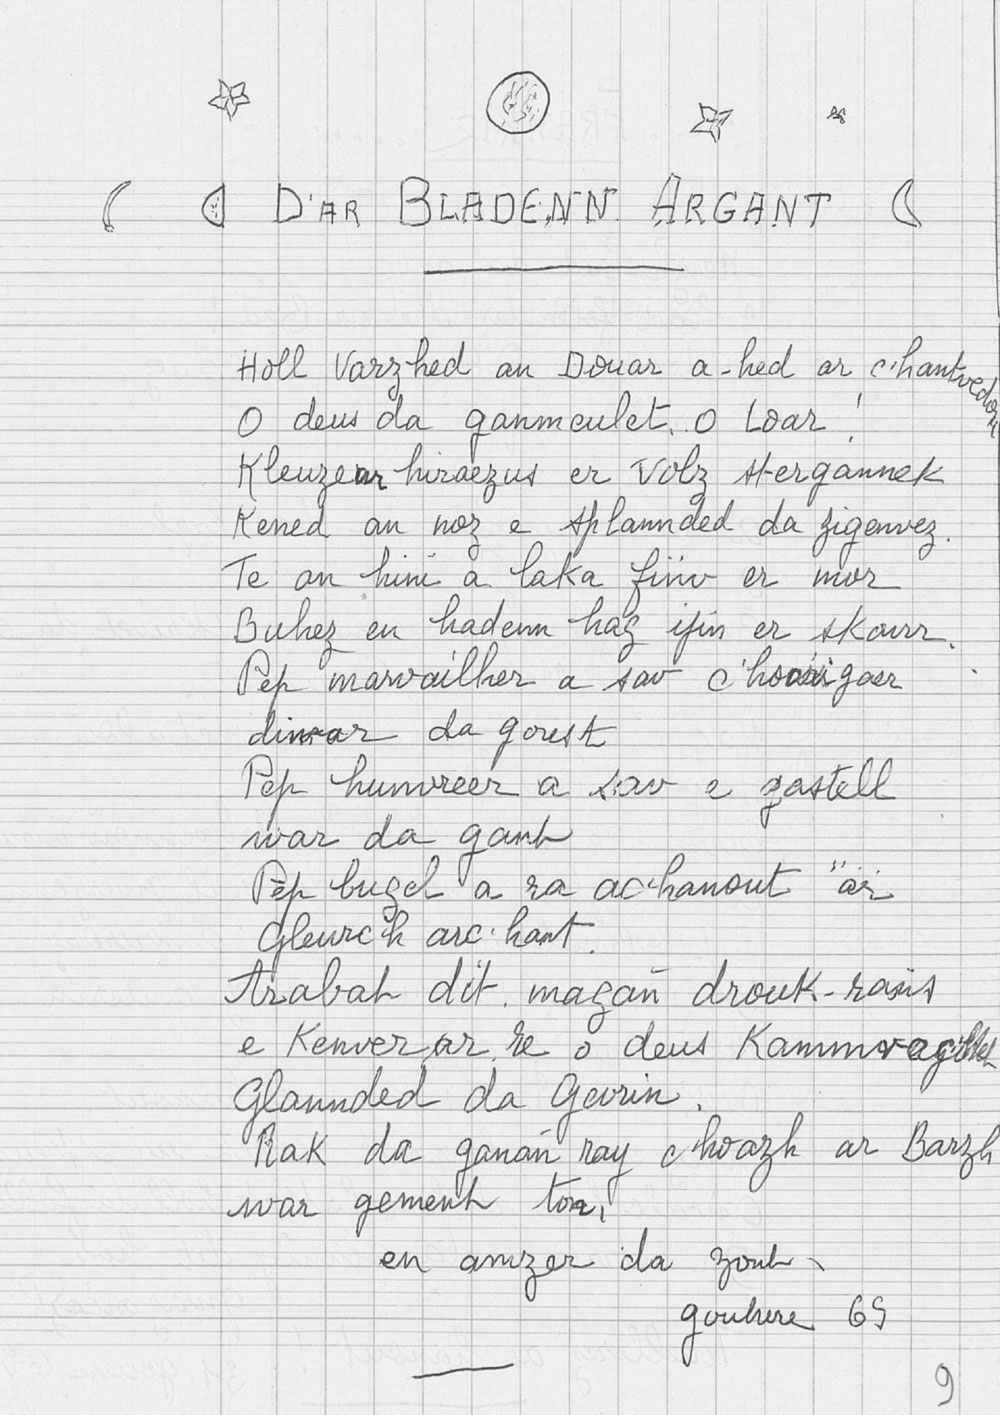 D'AR BLADENN ARGANT
Holl Varzhed an Douar a-hed ar c'hantvedoù
O deus da ganmeulet. O Loar !
Kleuzeur hiraezus er Volz stergannek
Kened an noz e splannded da zigenvez.
Te an hini a laka fiñv er mor
Buhez en hadenn hag ijin er skourr.
Pep marvailher a sav c'hoarigaer
diwar da goust
Pep hunvreer a sav e gastell
war da gant
Pep bugel a ra ac'hanout "ar
Gleurc'h arc'hant.
Arabat dit. magañ drouk-rañs
e Kenver ar re o deus Kammvac'het
Glannded da Gevrin.
Rak da ganañ ray c'hoazh ar Barzh
war gement ton,
en amzer da zont.
gouhere 69
9